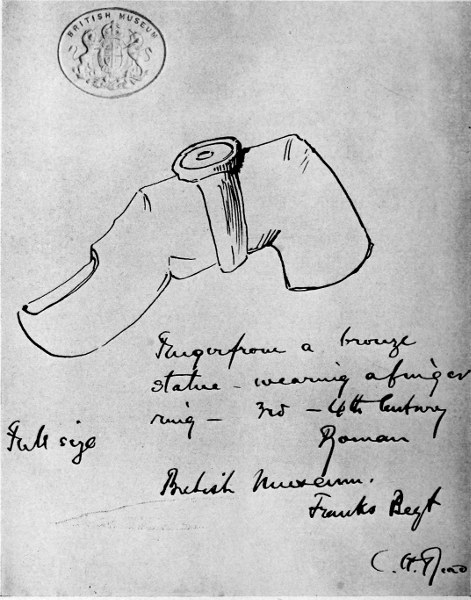 BRITISH MUSEUM
Finger from a bronze
statue - wearing a finger
ring - 3rd - 4th Century
Roman
Full size
British Museum.
Franks Beqt
C. H. Read